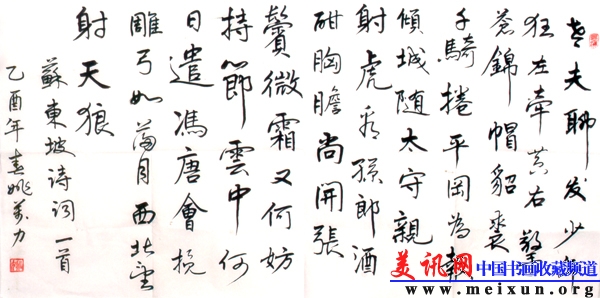 老夫聊发少年
狂左牵黄右擎
蒼錦帽貂裘
千騎捲平岡為報
傾城随太守親
射虎看孫郎酒
酣胸膽尚開張
鬢微霜又何妨
持節雲中何
日遣馮唐會挽
雕弓如满月西北望
射天狼
蘇東坡诗词一首
乙酉年春姚万力
美讯网
中国书画收藏频道
www.meixun.org